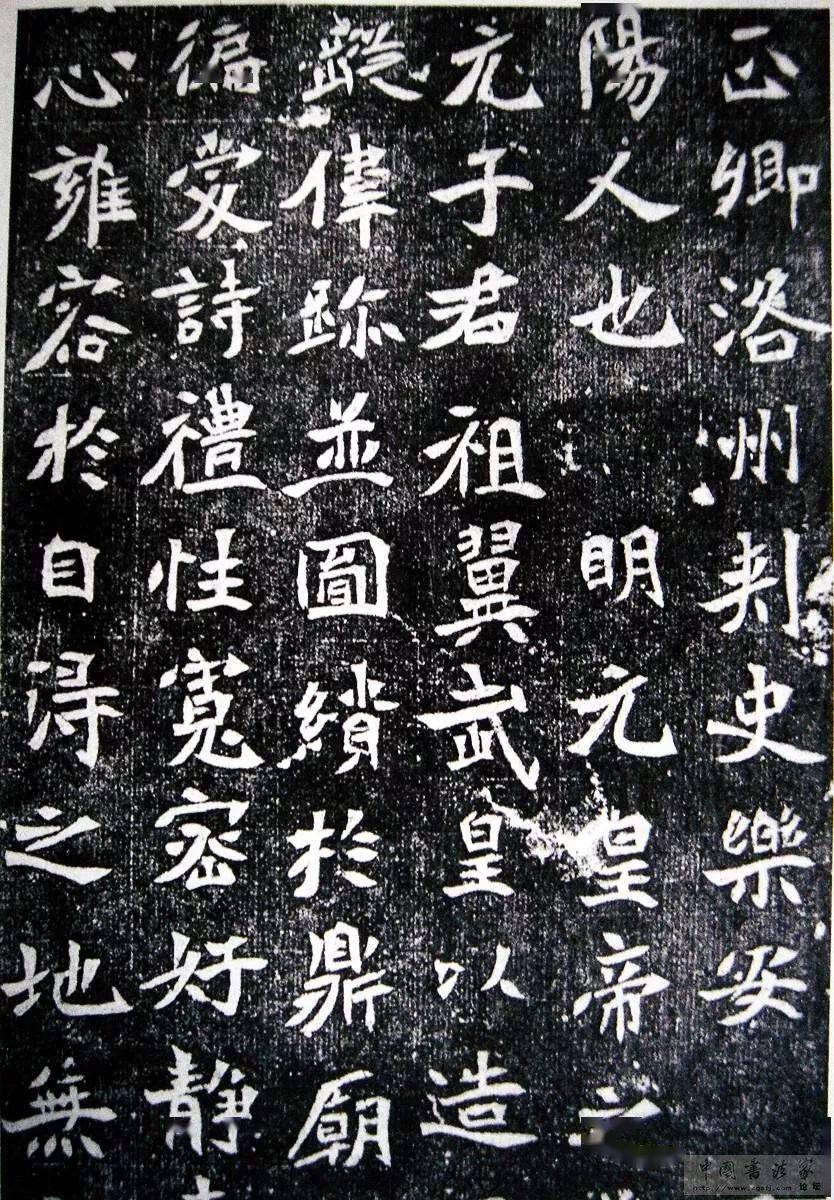 正卿洛州刾史樂安
陽人也明元皇帝之
元子君祖翼武皇以造
蹤偉跡並圖繢於鼎廟
徧愛詩禮性寬密好静
心雍容於自得之地無
中國書法家
论坛